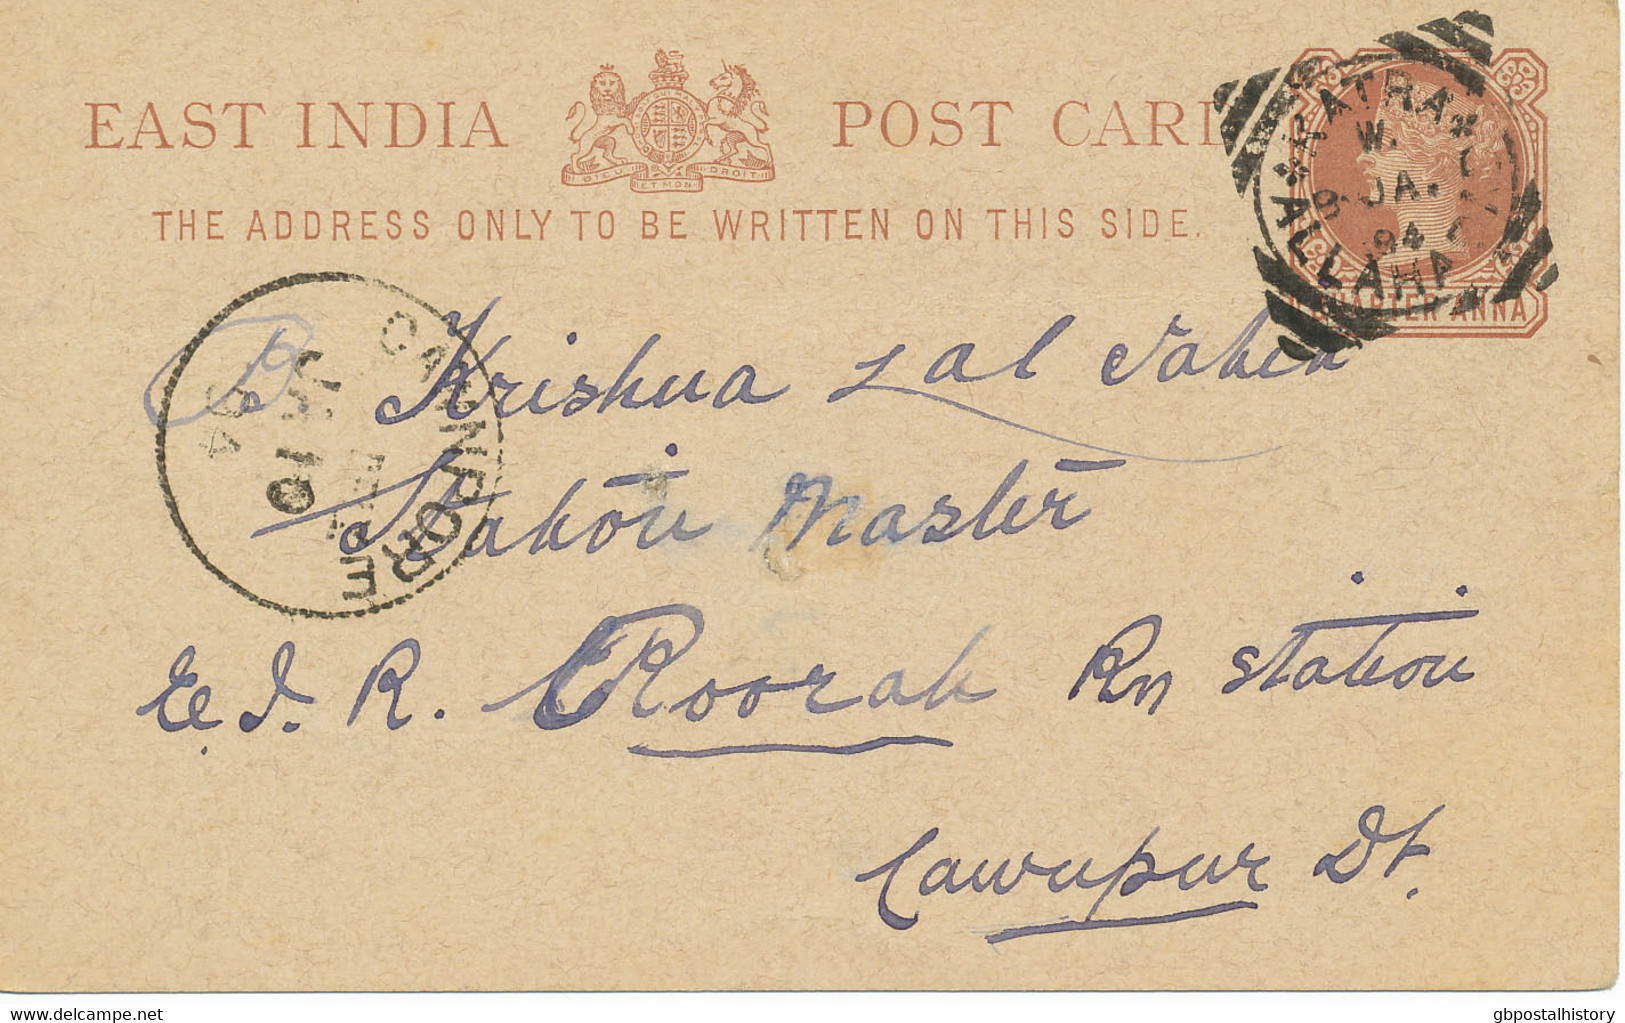 EAST INDIA POST CARD
DIEU ET MON DROIT
THE ADDRESS ONLY TO BE WRITTEN ON THIS SIDE.
KATRA
W.
JA.
94
ALLAHA
QUARTER ANNA
CAWNPORE
JA 10
94
B Krishna Lal Saheb
Station Master
E. I. R. Roorah Rn station
Cawnpur Dt.
www.delcampe.net
gbpostalhistory